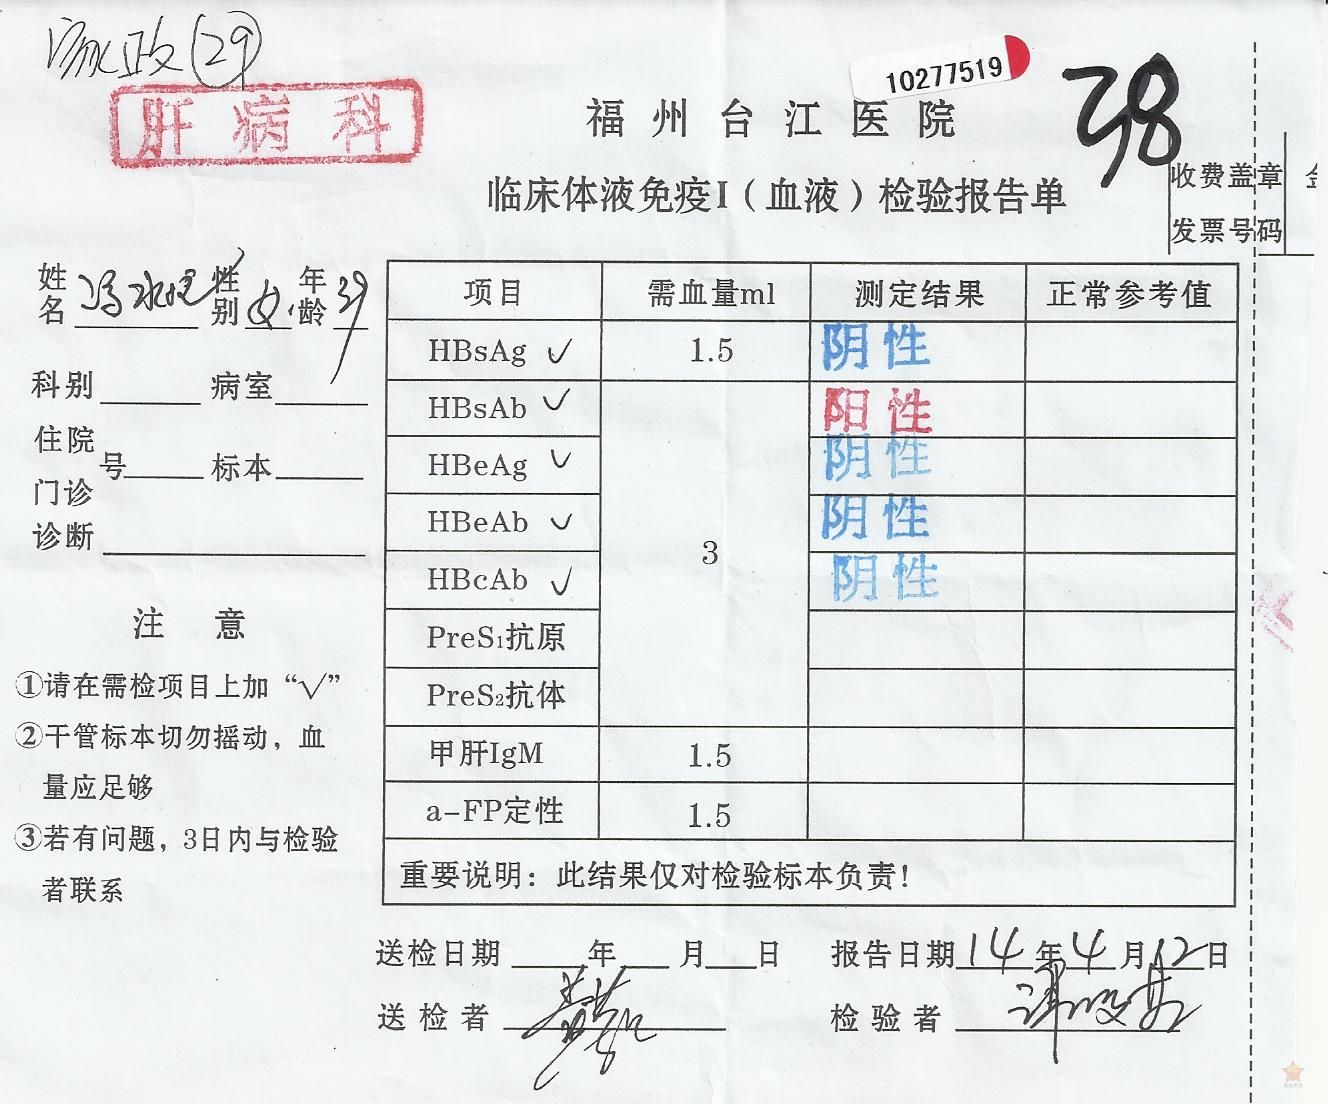 家政 29
肝病科
10277519
38
福州台江医院
临床体液免疫I（血液）检验报告单
收费盖章
发票号码
姓名 冯水 性别 女 年龄 39
科别 病室
住院
门诊 号 标本
诊断
注 意
①请在需检项目上加“√”
②干管标本切勿摇动，血
量应足够
③若有问题，3日内与检验
者联系
项目 需血量ml 测定结果 正常参考值
HBsAg √ 1.5 阴性
HBsAb √ 3 阳性
HBeAg √ 阴性
HBeAb √ 阴性
HBcAb √ 阴性
PreS₁抗原
PreS₂抗体
甲肝IgM 1.5
a-FP定性 1.5
重要说明：此结果仅对检验标本负责！
送检日期 年 月 日 报告日期 14 年 4 月 12 日
送检者 检验者